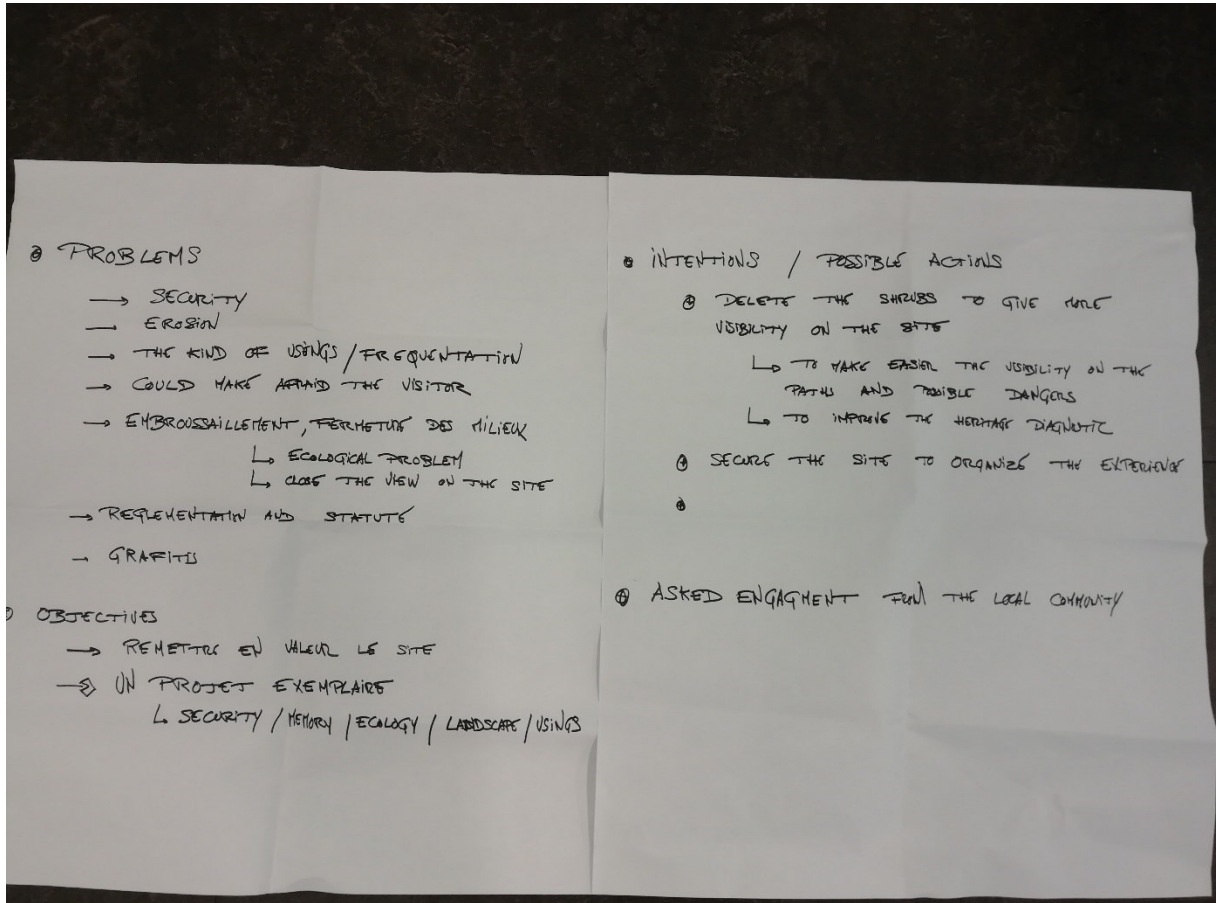 PROBLEMS
→ SECURITY
— EROSION
→ THE KIND OF USINGS / FREQUENTATION
→ COULD MAKE AFRAID THE VISITOR
→ EMBROUSSAILLEMENT, FERMETURE DES MILIEUX
↳ ECOLOGICAL PROBLEM
↳ CLOSE THE VIEW ON THE SITE
→ REGLEMENTATIN AND STATUTE
→ GRAFITIS
OBJECTIVES
→ REMETTRE EN VALEUR LE SITE
→ UN PROJET EXEMPLAIRE
↳ SECURITY / MEMORY / ECOLOGY / LANDSCAPE / USINGS
INTENTIONS / POSSIBLE ACTIONS
DELETE THE SHRUBS TO GIVE MORE
VISIBILITY ON THE SITE
↳ TO MAKE EASIER THE VISIBILITY ON THE
PATHS AND POSSIBLE DANGERS
↳ TO IMPROVE THE HERITAGE DIAGNOTIC
SECURE THE SITE TO ORGANIZE THE EXPERIENCE
ASKED ENGAGMENT THE LOCAL COMMUNITY